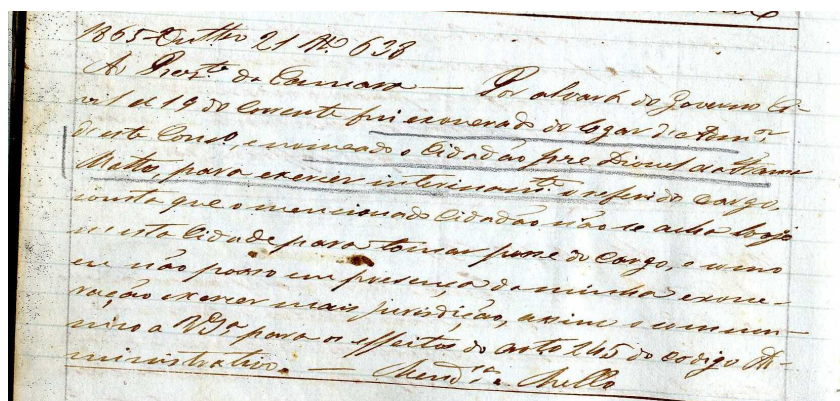 1865 Outbro 21 No 638
Ao Prezte da Camara — Por alvará do Governo Ci-
vil de 19 do corrente fui exonerado do logar d'Admor
d'este Conco, e nomeado o Cidadão José Diniz da
Mattos, para exercer interinamte o referido cargo.
consta que o mencionado Cidadão não se acha hoje
nesta Cidade para tomar posse do cargo, e como
eu não posso em presença da minha exone-
ração exercer mais jurisdição, assim o commu-
nico a VSa para os effeitos do arto 245 do codigo Ad-
ministrativo. — Mello